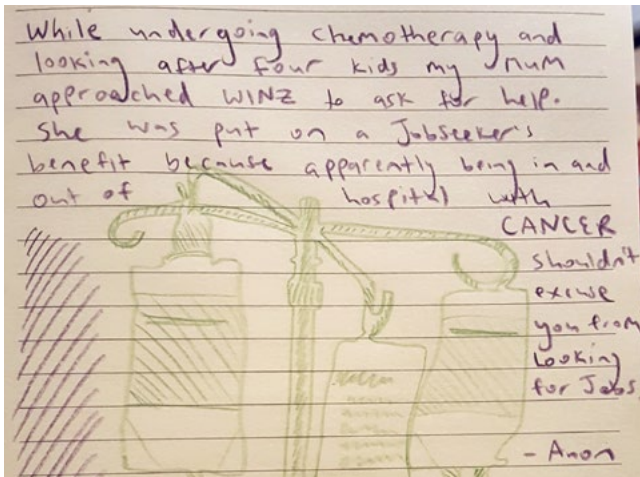 While undergoing chemotherapy and
looking after four kids my mum
approached WINZ to ask for help.
She was put on a Jobseeker's
benefit because apparently being in and
out of hospital with
CANCER
shouldn't
excuse
you from
Looking
for Jobs
- Anon